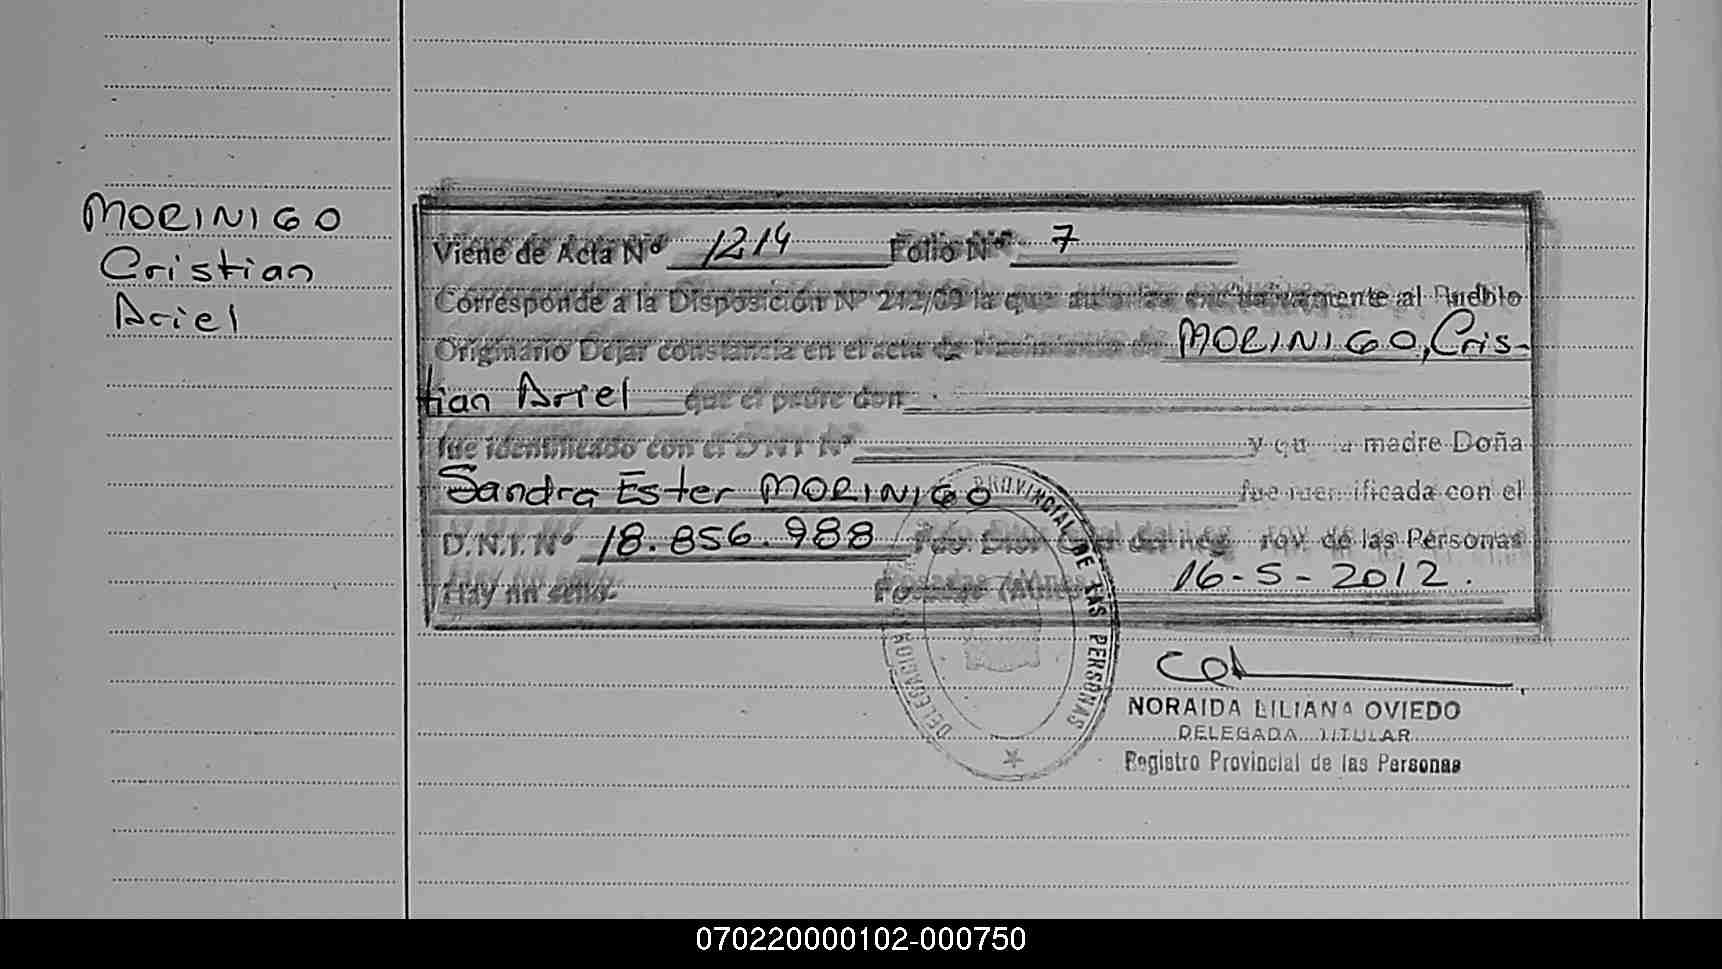 MORINIGO
Cristian
Ariel
Viene de Acta Nº 1214 Folio Nº 7
Corresponde a la Disposición Nº 212/09 la que autoriza exclusivamente al Pueblo
Originario Dejar constancia en el acta de Nacimiento de MORINIGO, Cris-
tian Ariel que el padre don
fue identificado con el DNI Nº y que la madre Doña
Sandra Ester MORINIGO fue identificada con el
D.N.I. Nº 18.856.988 Fdo. Dtor Gral del Reg. Prov. de las Personas
Hay un sello. Posadas (Mnes 16-5-2012.
DELEGACION PROVINCIAL DE LAS PERSONAS
NORAIDA LILIANA OVIEDO
DELEGADA TITULAR
Registro Provincial de las Personas
070220000102-000750